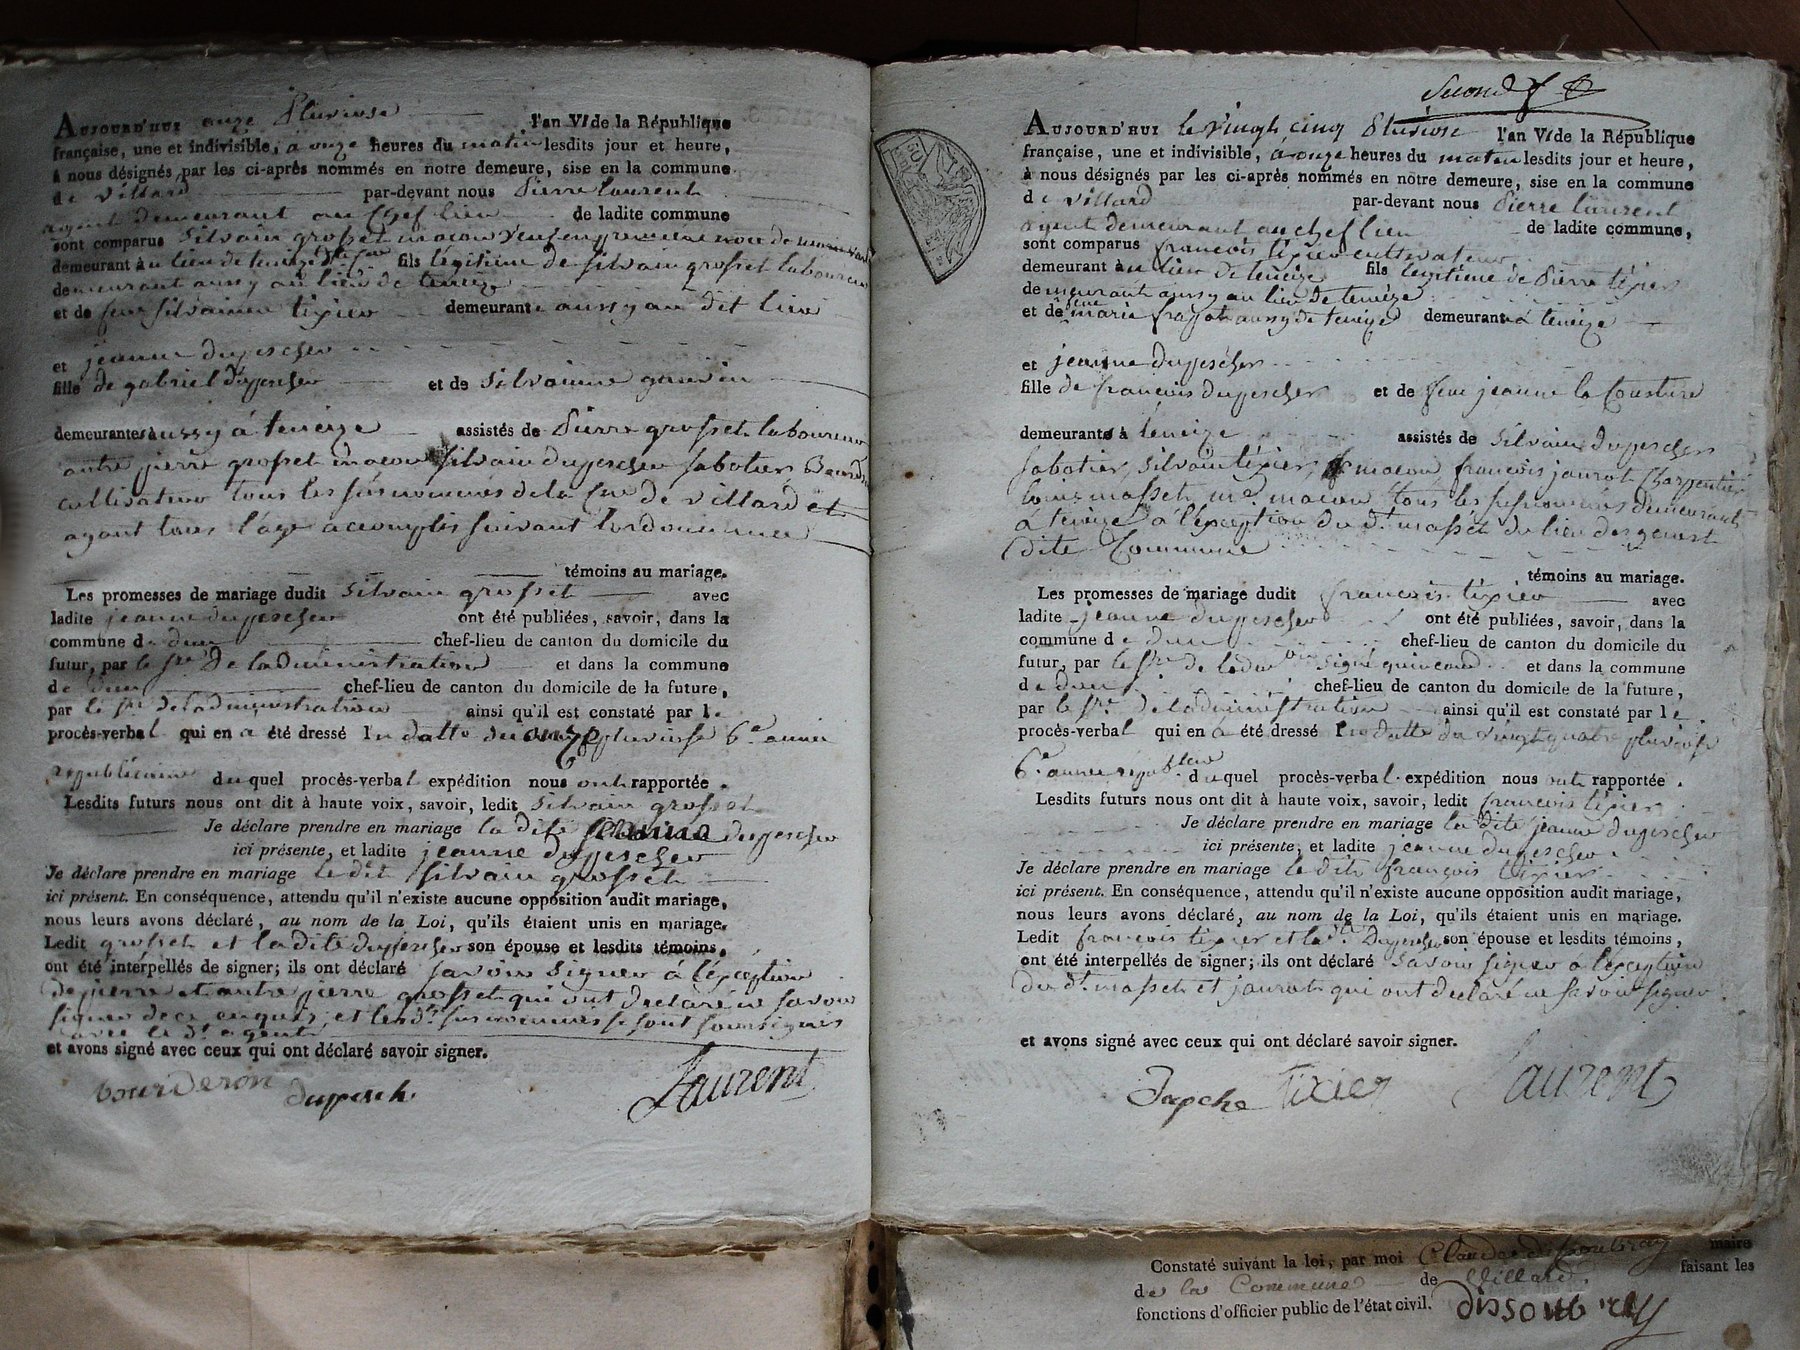 Aujourd'hui onze Pluviose l'an VI de la République
française, une et indivisible, à onze heures du matin lesdits jour et heure,
à nous désignés par les ci-après nommés en notre demeure, sise en la commune
de villard par-devant nous Pierre laurent
agent demeurant au chef lieu de ladite commune
sont comparus Silvain grosset macon veuf en premiere noce de
demeurant au lieu de teneize fils legitime de Silvain grosset laboureur
demeurant aussy au lieu de teneize
et de feue silvainne tixier demeurante aussy au dit lieu
et jeanne dupescher
fille de gabriel dupescher et de Silvainne gauvin
demeurantes aussy à teneize assistés de Pierre grosset laboureur
autre pierre grosset macon Silvain dupescher sabotier
cultivateur tous les susnommés de la de villard et
ayant tous l'age accomplis suivant l'ordonnance
témoins au mariage.
Les promesses de mariage dudit Silvain grosset avec
ladite jeanne dupescher ont été publiées, savoir, dans la
commune de dun chef-lieu de canton du domicile du
futur, par le de ladministration et dans la commune
de dun chef-lieu de canton du domicile de la future,
par le de ladministration ainsi qu'il est constaté par le
procès-verbal qui en a été dressé en datte du onze pluviose 6e annee
republicaine duquel procès-verbal expédition nous ont rapportée.
Lesdits futurs nous ont dit à haute voix, savoir, ledit Silvain grosset
Je déclare prendre en mariage la dite dupescher
ici présente, et ladite jeanne dupescher
Je déclare prendre en mariage le dit Silvain grosset
ici présent. En conséquence, attendu qu'il n'existe aucune opposition audit mariage,
nous leurs avons déclaré, au nom de la Loi, qu'ils étaient unis en mariage.
Ledit grosset et la dite dupescher son épouse et lesdits témoins,
ont été interpellés de signer; ils ont déclaré savoir signer a l'exception
de pierre et autre pierre grosset qui ont declaré ne savoir
signer de ce enquis, et les dts susnommés se sont soussignés
avec le dt agent
et avons signé avec ceux qui ont déclaré savoir signer.
bourderon dupesch. Laurent
Second
Aujourd'hui le vingt cinq Pluviose l'an VI de la République
française, une et indivisible, à onze heures du matin lesdits jour et heure,
à nous désignés par les ci-après nommés en notre demeure, sise en la commune
de villard par-devant nous Pierre laurent
agent demeurant au chef lieu de ladite commune,
sont comparus françois tixier cultivateur
demeurant au lieu de teneize fils legitime de Pierre tixier
demeurant aussy au lieu de teneize
et de feue marie aussy de teneize demeurant à teneize
et jeanne dupescher
fille de francois dupescher et de feue jeanne la Cousture
demeurants à teneize assistés de Silvain dupescher
sabotier, Silvain tixier, macon françois jaurot Charpentier
louis masset md macon tous les susnommés demeurant
a teneize a l'exception du dt masset du lieu des genest
dite Commune
témoins au mariage.
Les promesses de mariage dudit francois tixier avec
ladite jeanne dupescher ont été publiées, savoir, dans la
commune de dun chef-lieu de canton du domicile du
futur, par le de signé et dans la commune
de dun chef-lieu de canton du domicile de la future,
par le de ladministration ainsi qu'il est constaté par le
procès-verbal qui en a été dressé en datte du vingt quatre pluviose
6e annee duquel procès-verbal expédition nous ont rapportée.
Lesdits futurs nous ont dit à haute voix, savoir, ledit francois tixier
Je déclare prendre en mariage la dite jeanne dupescher
ici présente, et ladite jeanne dupescher
Je déclare prendre en mariage le dit françois tixier
ici présent. En conséquence, attendu qu'il n'existe aucune opposition audit mariage,
nous leurs avons déclaré, au nom de la Loi, qu'ils étaient unis en mariage.
Ledit françois tixier et la dte Dupescher son épouse et lesdits témoins,
ont été interpellés de signer; ils ont déclaré savoir signer a l'exception
du dt masset et jaurot qui ont declaré ne savoir signer
et avons signé avec ceux qui ont déclaré savoir signer.
Dapche tixier Laurent
Constaté suivant la loi, par moi Claude dissoubray maire
de la Commune de Villard. faisant les
fonctions d'officier public de l'état civil. dissoubray